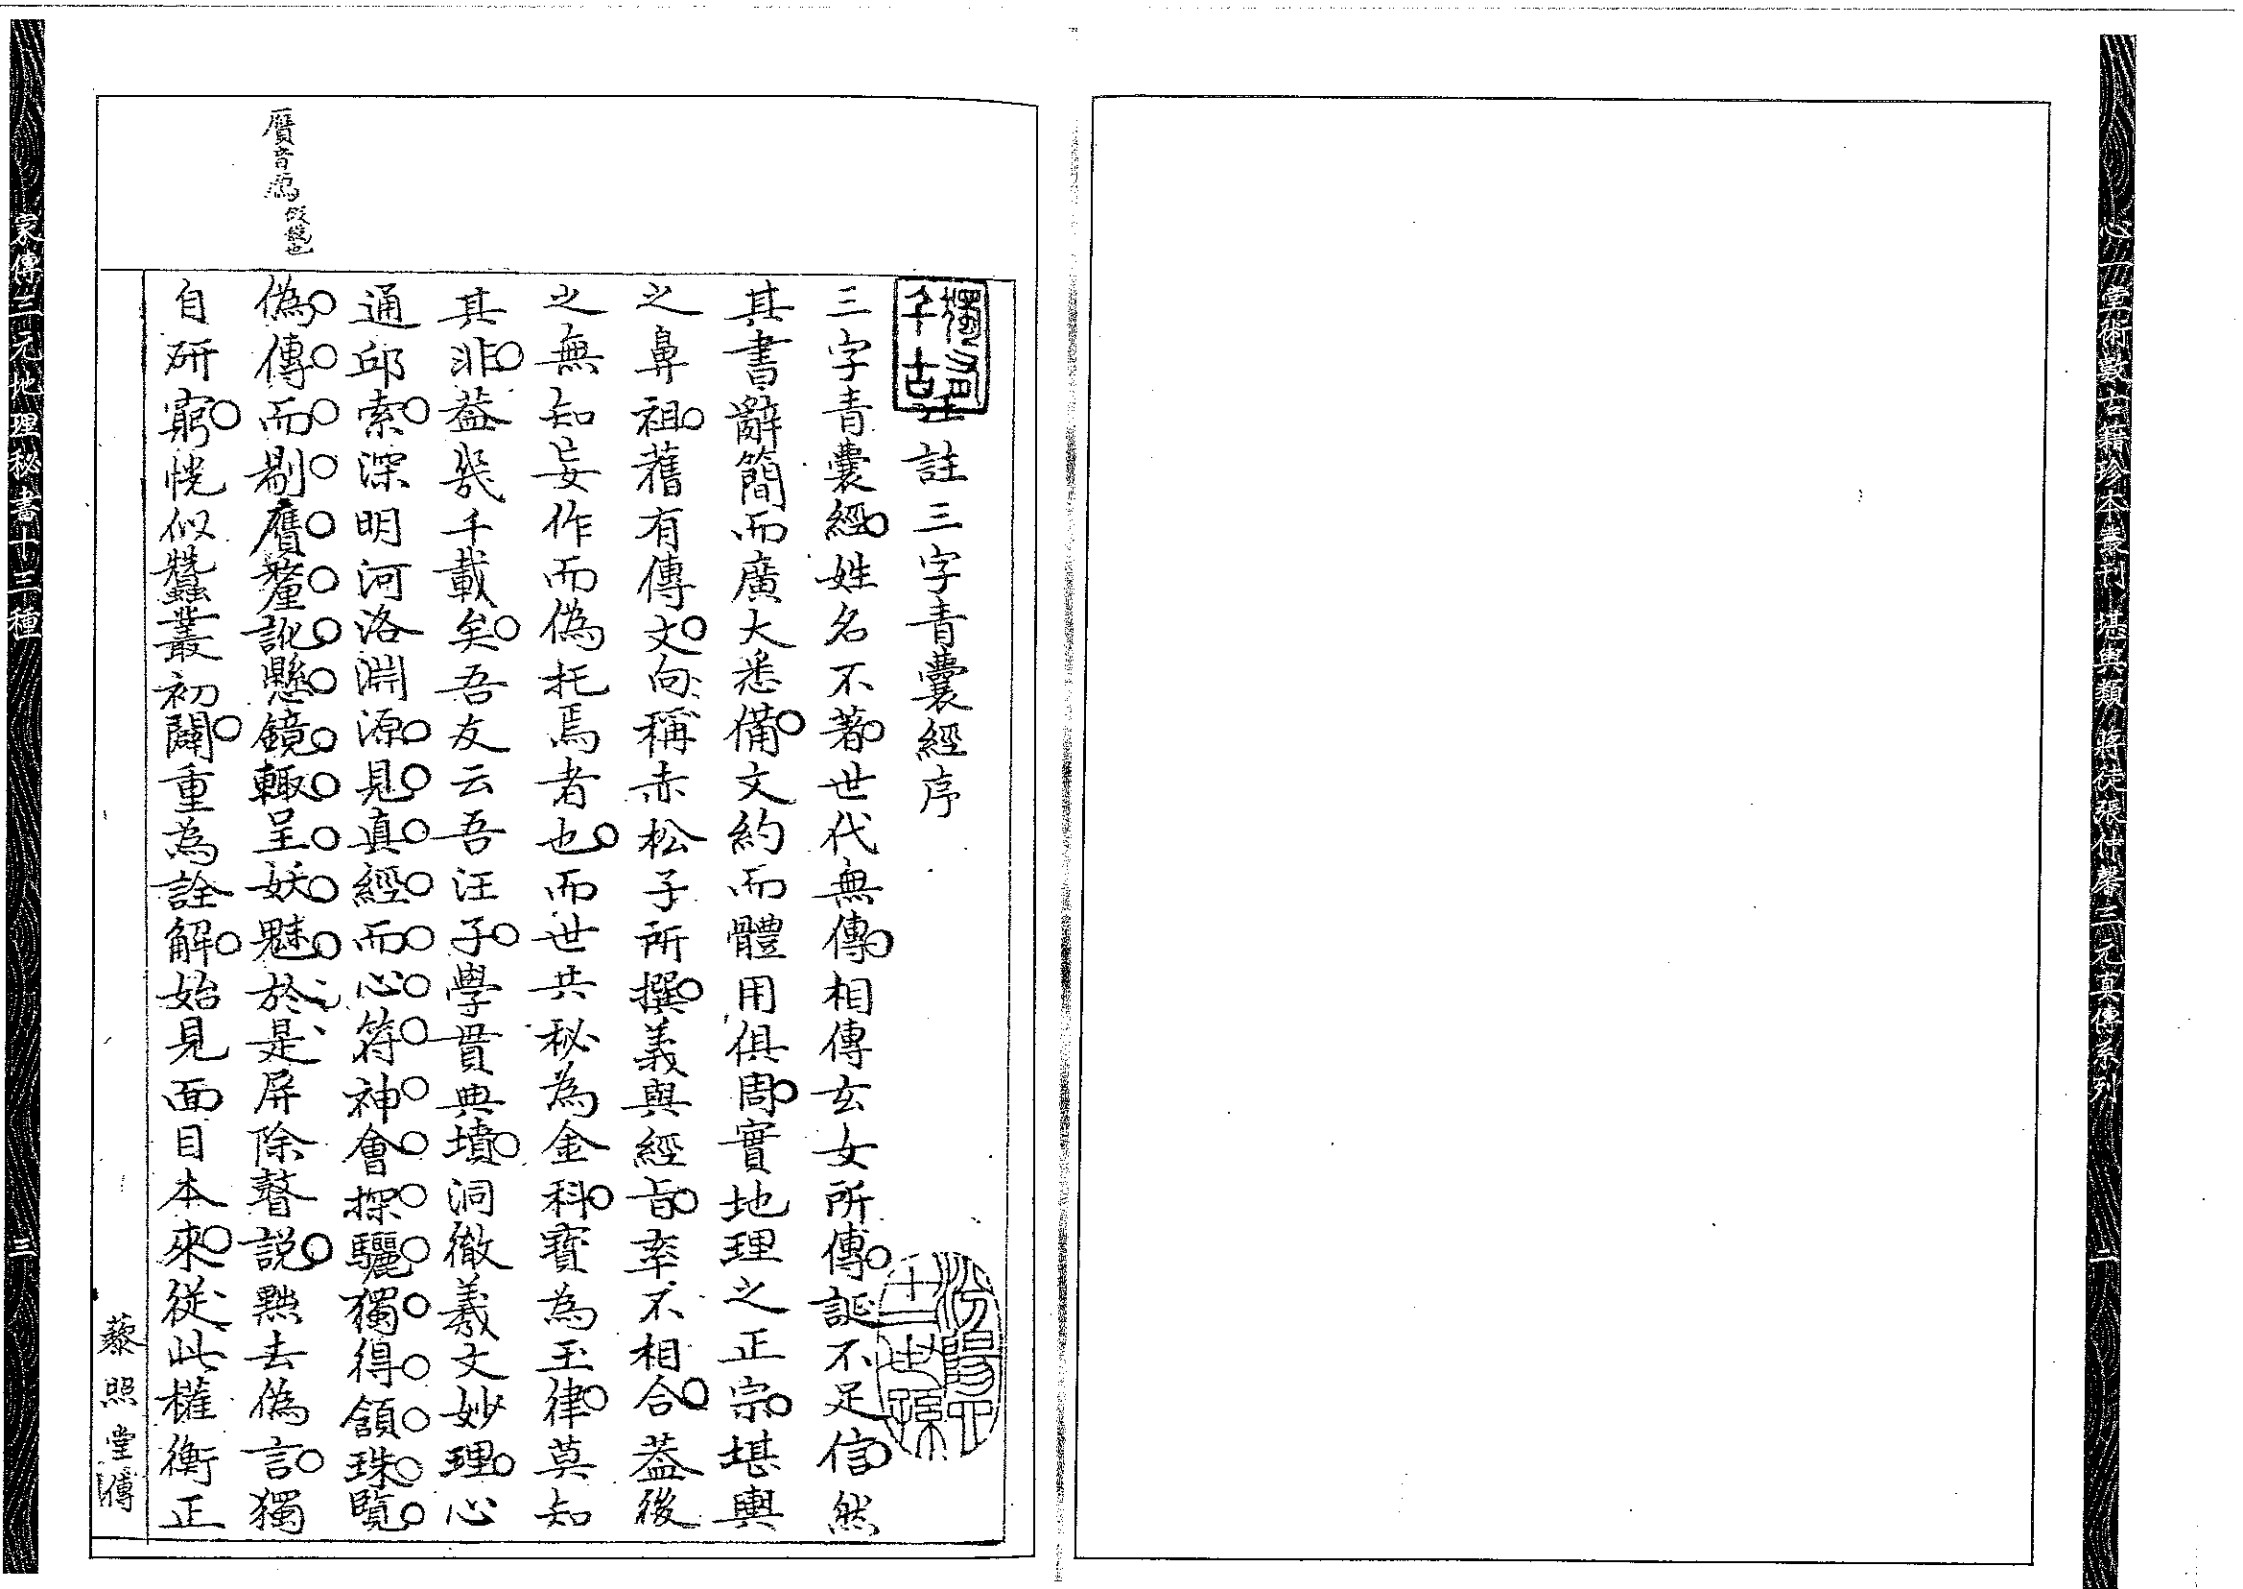 心一堂術數古籍珍本叢刊 堪輿類 蔣徒張仲馨三元真傳系列
二
汪註三字青囊經序
三字青囊經姓名不著世代無傳相傳玄女所傳誕不足信然
其書辭簡而廣大悉備文約而體用俱周實地理之正宗堪輿
之鼻祖舊有傳文向稱赤松子所撰義與經旨率不相合蓋後
之無知妄作而偽托焉者也而世共秘為金科寶為玉律莫知
其非蓋幾千載矣吾友云吾汪子學貫典墳洞徹羲文妙理心
通邱索深明河洛淵源見真經而心符神會探驪獨得頷珠覽
偽傳而剔贋釐訛懸鏡輒呈妖魅於是屏除瞽說黜去偽言獨
自研窮恍似蠶叢初闢重為詮解始見面目本來從此權衡正
贋音鴈 假贋也
藜照堂傳
家傳三元地理秘書十三種
三